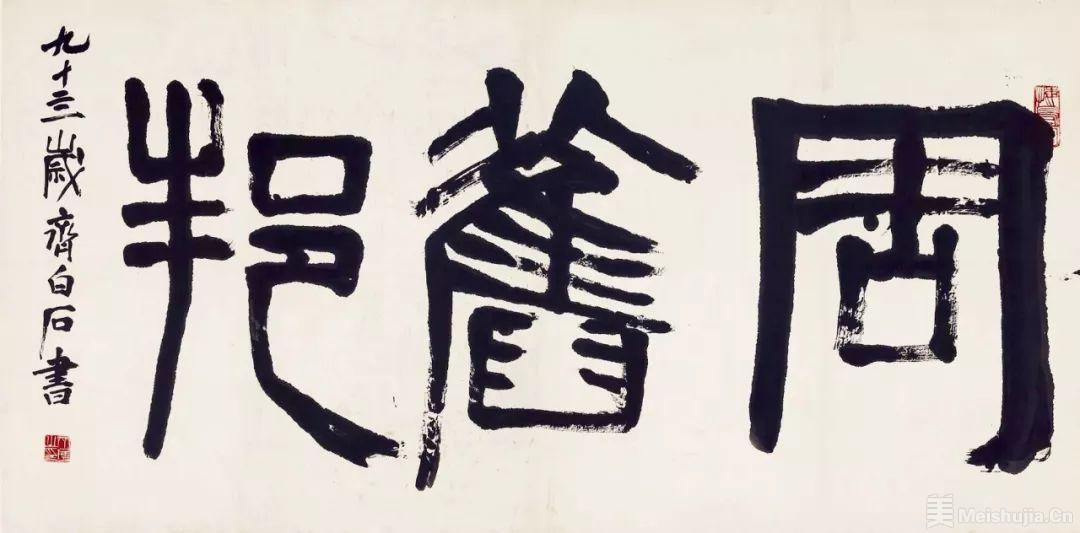 周舊邦
九十三歲齊白石書
美 Meishujia.Cn